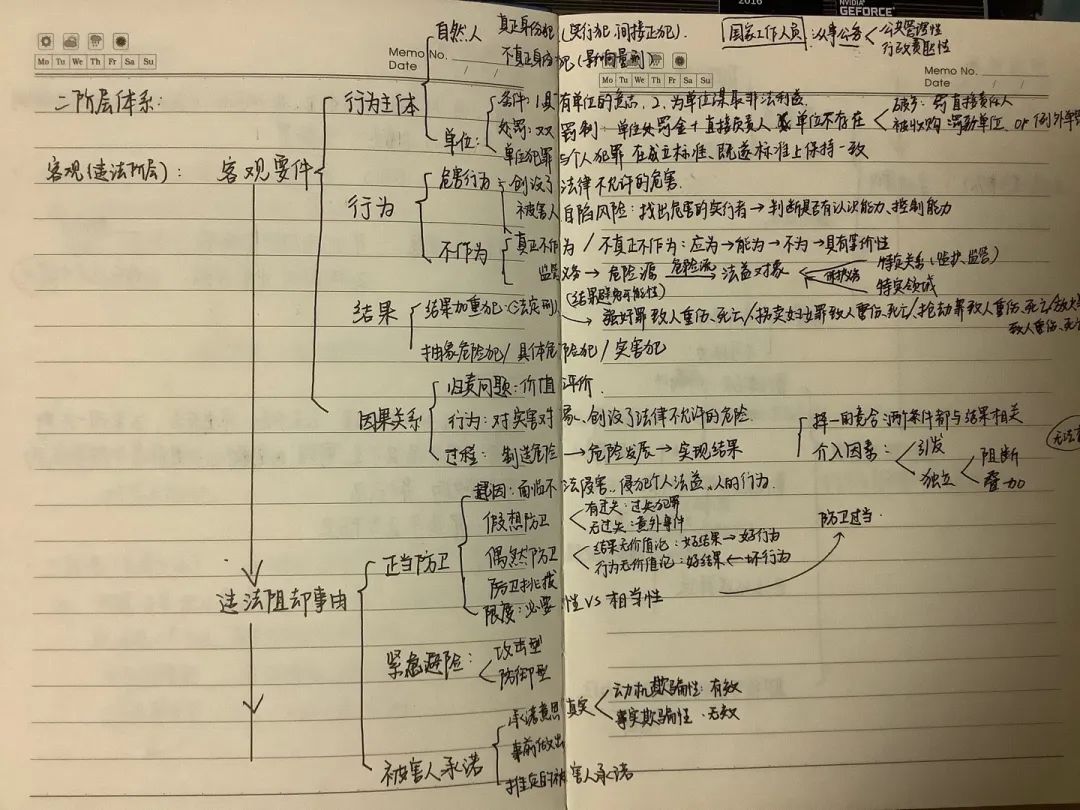 2016
NVIDIA
GEFORCE
Memo No.
Date / /
Mo Tu We Th Fr Sa Su
Memo No.
Date / /
Mo Tu We Th Fr Sa Su
二阶层体系:
客观(违法阶层): 客观要件
行为主体
自然人 真正身份犯(实行犯,间接正犯).
不真正身份犯(影响量刑)
国家工作人员:从事公务<公共管理性
行政责职性
单位:
条件: 1.具有单位的意志. 2.为单位谋取非法利益.
处罚: 双罚制: 单位处罚金+直接负责人
单位不存在
破产: 罚直接责任人
被收购
单位犯罪与个人犯罪 在成立标准、既遂标准上保持一致
行为
危害行为: 创设了法律不允许的危害.
被害人自陷风险: 找出危害的实行者→判断是否有认识能力、控制能力
不作为
真正不作为/不真正不作为: 应为→能为→不为→具有等价性
监管义务→危险源 危险流→法益对象 ← 保护义务
特定关系(监护、监管)
特定领域
(结果避免可能性)
结果
结果加重犯:(法定刑)
强奸罪致人重伤、死亡/拐卖妇女罪致人重伤、死亡/抢劫罪致人重伤、死亡/放火
致人重伤、死亡
抽象危险犯/具体危险犯/实害犯
因果关系
归责问题: 价值评价.
行为: 对实害对象、创设了法律不允许的危险.
过程: 制造危险→危险发展→实现结果
择一的竞合:两个条件都与结果相关
介入因素:<引发
独立<阻断
叠加
违法阻却事由
正当防卫
起因: 面临不法侵害..侵犯个人法益..人的行为.
假想防卫<有过失: 过失犯罪
无过失: 意外事件
偶然防卫<结果无价值论: 好结果→好行为
行为无价值论: 好结果←坏行为
防卫挑拨
限度: 必要性VS相当性
防卫过当.
紧急避险:<攻击型
防御型
被害人承诺
承诺意思真实<动机欺骗性: 有效
事实欺骗性: 无效
事前做出
推定的被害人承诺